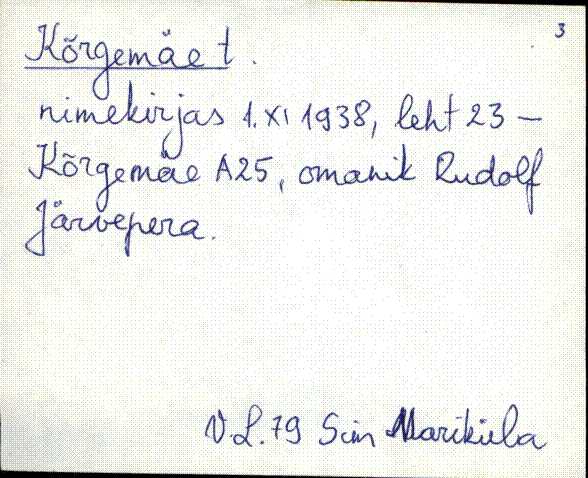 3
Kõrgemäe t.
nimekirjas 1. XI 1938, leht 23 –
Kõrgemäe A25, omanik Rudolf
Järvepera.
V.L. 79 Sim Marikula